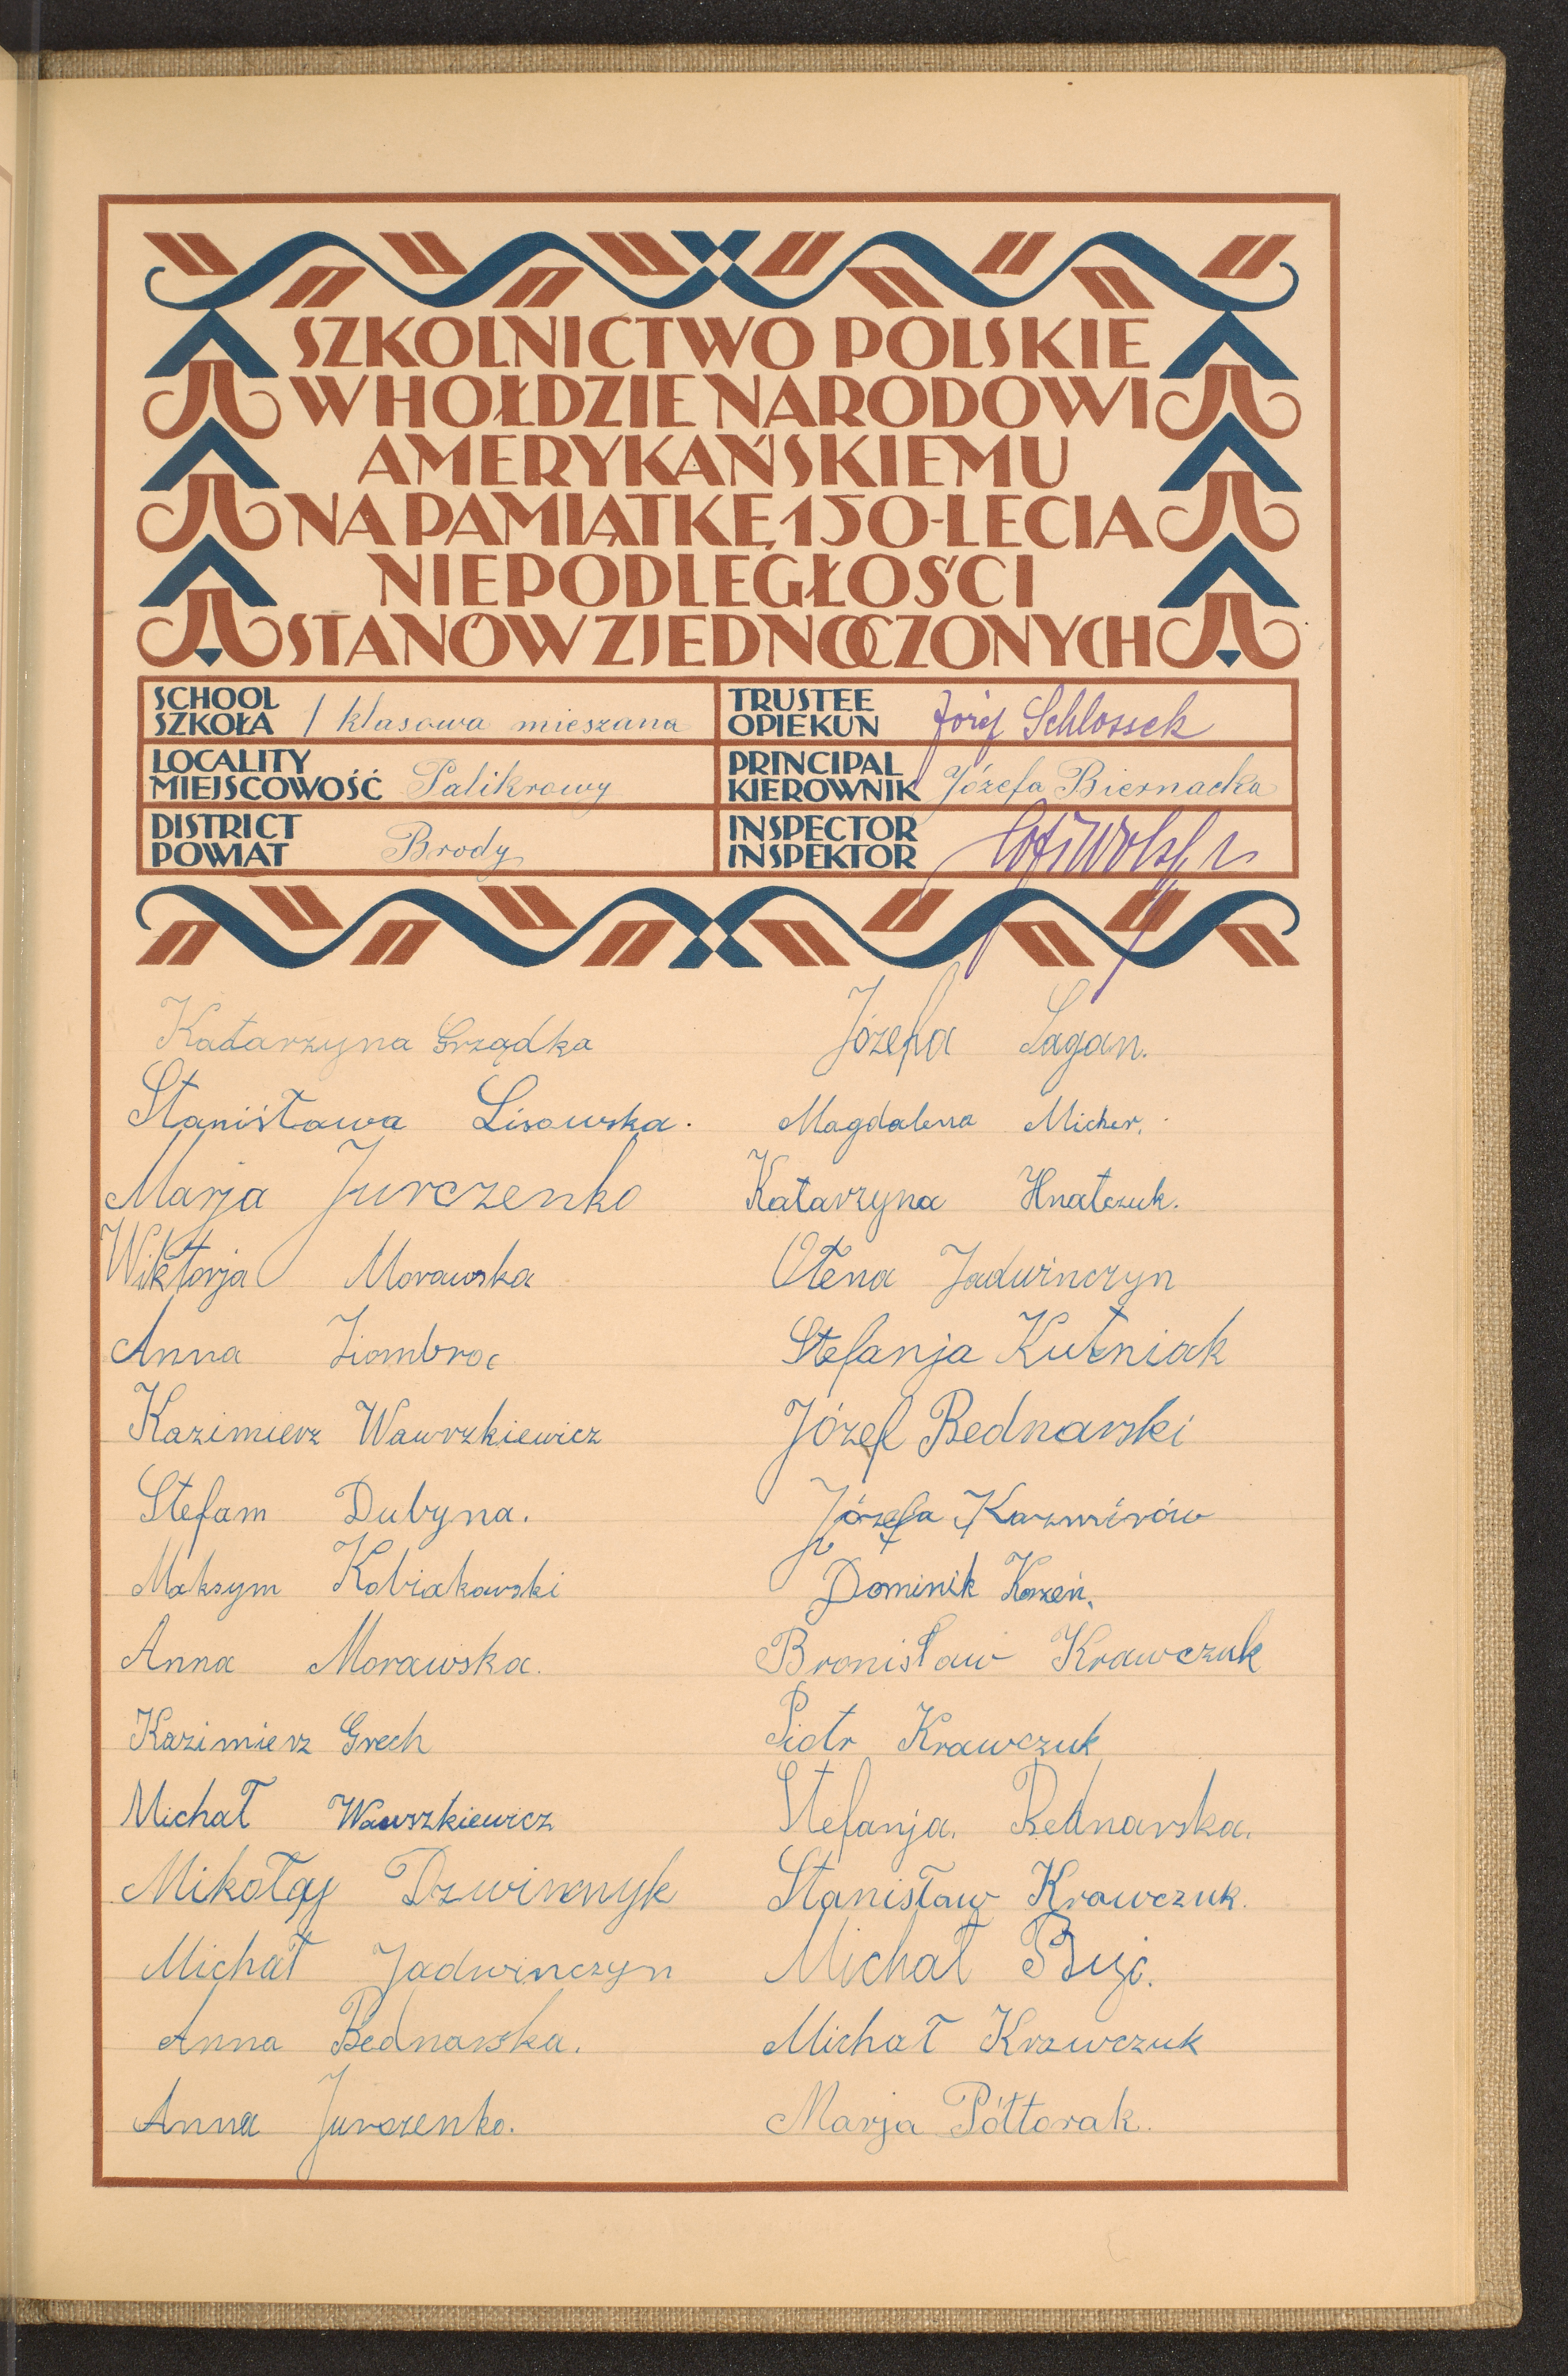 SZKOLNICTWO POLSKIE
W HOŁDZIE NARODOWI
AMERYKAŃSKIEMU
NA PAMIĄTKĘ 150-LECIA
NIEPODLEGŁOŚCI
STANÓW ZJEDNOCZONYCH
SCHOOL
SZKOŁA 1 klasowa mieszana
TRUSTEE
OPIEKUN Józef Schlossek
LOCALITY
MIEJSCOWOŚĆ Palikrowy
PRINCIPAL
KIEROWNIK Józefa Biernacka
DISTRICT
POWIAT Brody
INSPECTOR
INSPEKTOR
Katarzyna Grządka
Stanisława Lisowska.
Marja Jurczenko
Wiktorja Morawska
Anna Ziombroc
Kazimierz Wawrzkiewicz
Stefam Dubyna.
Maksym Kobiakowski
Anna Morawska.
Kazimierz Grech
Michał Wawszkiewicz
Mikołaj Dzwinczyk
Michał Jadwinczyn
Anna Bednarska.
Anna Jurczenko.
Józefa Sagan.
Magdalena Micher.
Katarzyna Hnatczuk.
Ołena Jadwinczyn
Stefanja Kutniak
Józef Bednarski
Józefa Kazmirów
Dominik Korzeń.
Bronisław Krawczuk
Piotr Krawczuk
Stefanja. Bednarska.
Stanisław Krawczuk.
Michał
Michał Krawczuk
Marja Półtorak.